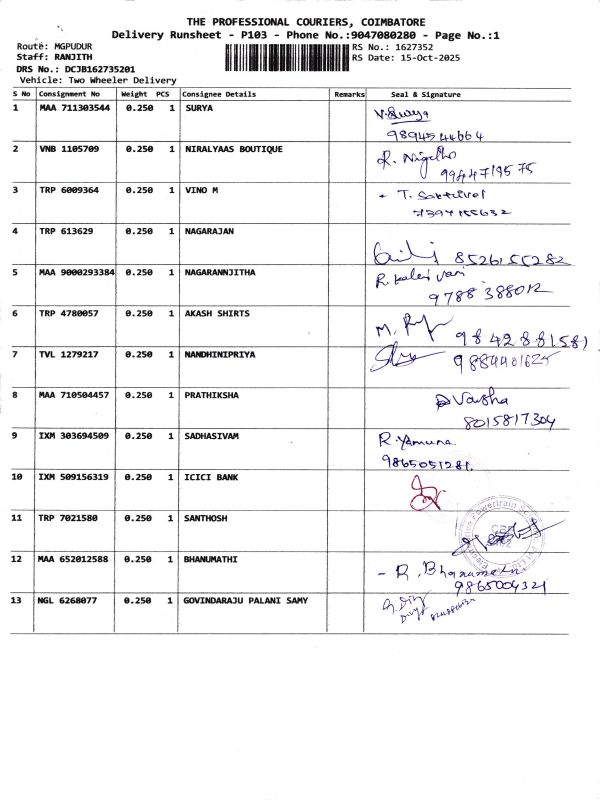 THE PROFESSIONAL COURIERS, COIMBATORE
Delivery Runsheet - P103 - Phone No.:9047080280 - Page No.:1
Route: MGPUDUR RS No.: 1627352
Staff: RANJITH RS Date: 15-Oct-2025
DRS No.: DCJB162735201
Vehicle: Two Wheeler Delivery
S No Consignment No Weight PCS Consignee Details Remarks Seal & Signature
1 MAA 711303544 0.250 1 SURYA V.Surya
9894544664
2 VNB 1105709 0.250 1 NIRALYAAS BOUTIQUE
3 TRP 6009364 0.250 1 VINO M
4 TRP 613629 0.250 1 NAGARAJAN
8526155282
5 MAA 9000293384 0.250 1 NAGARANNJITHA
9788388012
6 TRP 4780057 0.250 1 AKASH SHIRTS
9842881581
7 TVL 1279217 0.250 1 NANDHINIPRIYA
8 MAA 710504457 0.250 1 PRATHIKSHA
8015817304
9 IXM 303694509 0.250 1 SADHASIVAM R.Yamuna.
9865051281.
10 IXM 509156319 0.250 1 ICICI BANK
11 TRP 7021580 0.250 1 SANTHOSH
12 MAA 652012588 0.250 1 BHANUMATHI
9865004321
13 NGL 6268077 0.250 1 GOVINDARAJU PALANI SAMY
Divya